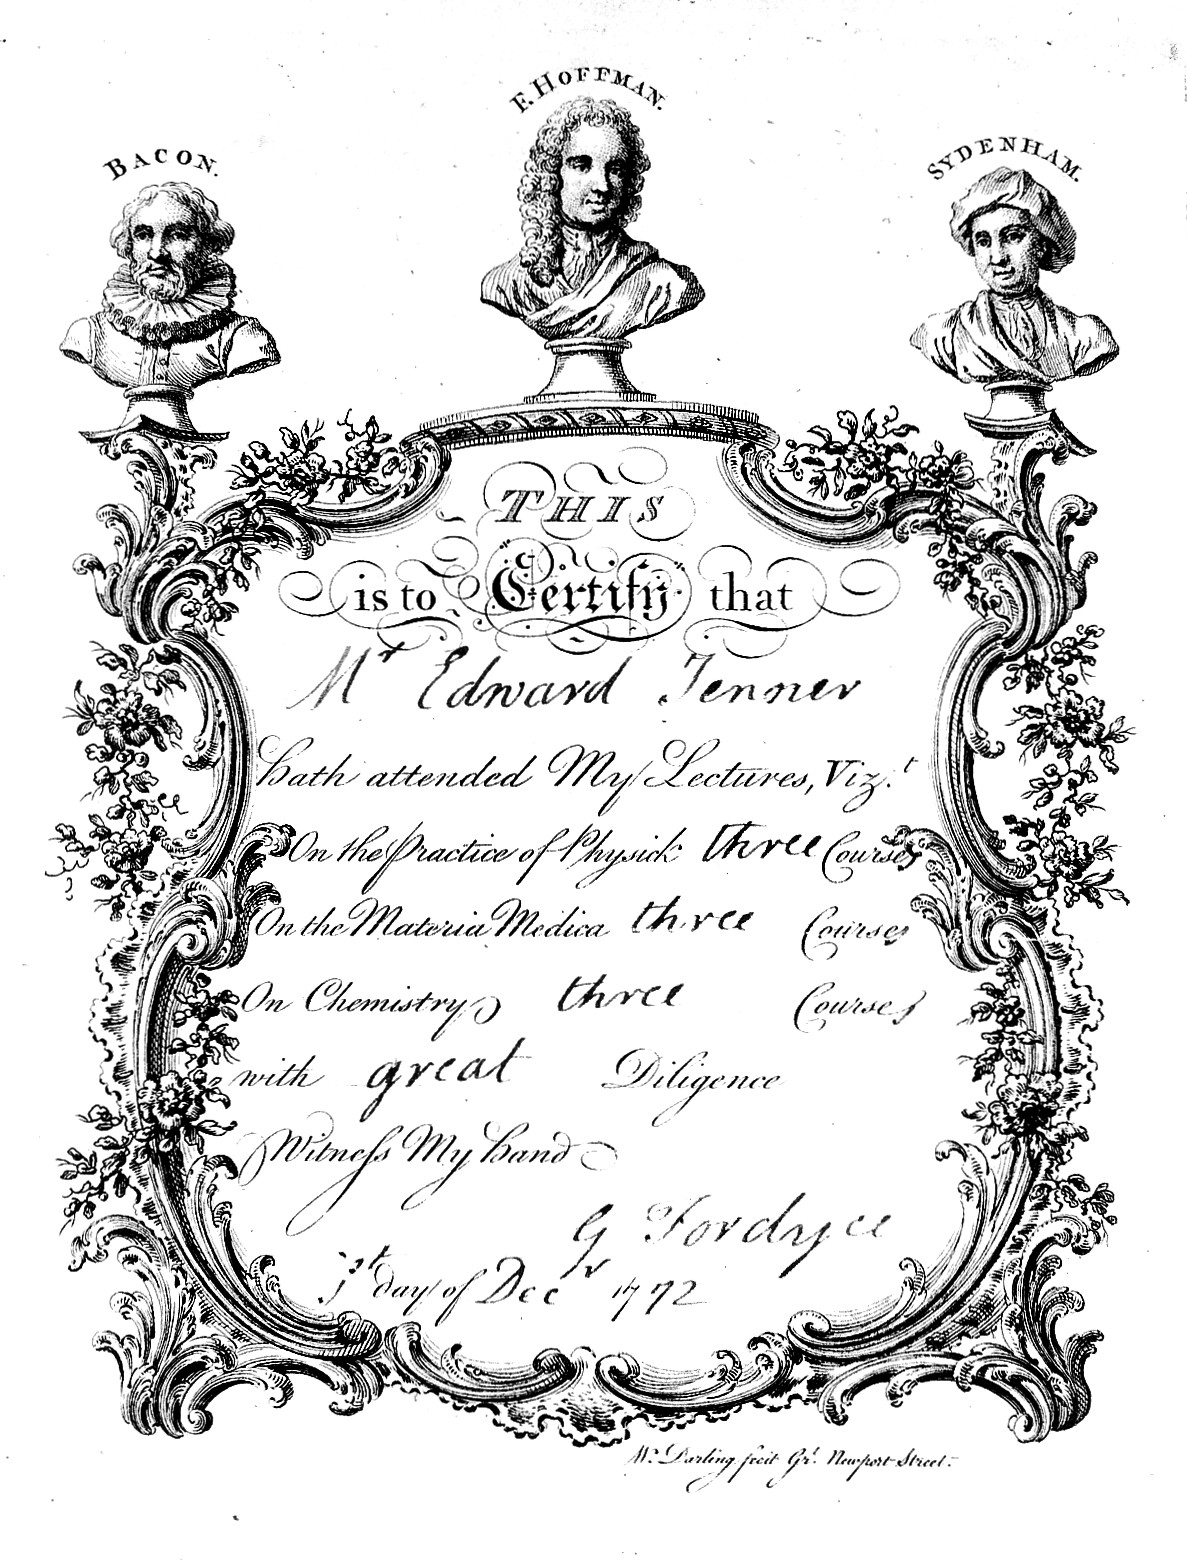 F. HOFFMAN.
BACON.
SYDENHAM.
THIS
is to Certify that
Mr Edward Jenner
hath attended My Lectures, Vizt.
On the Practice of Physick three Courses
On the Materia Medica three Courses
On Chemistry three Courses
with great Diligence
Witneſs My hand
G Fordyce
1st day of Decr 1772
Wm. Darling fecit Gt. Newport Street.